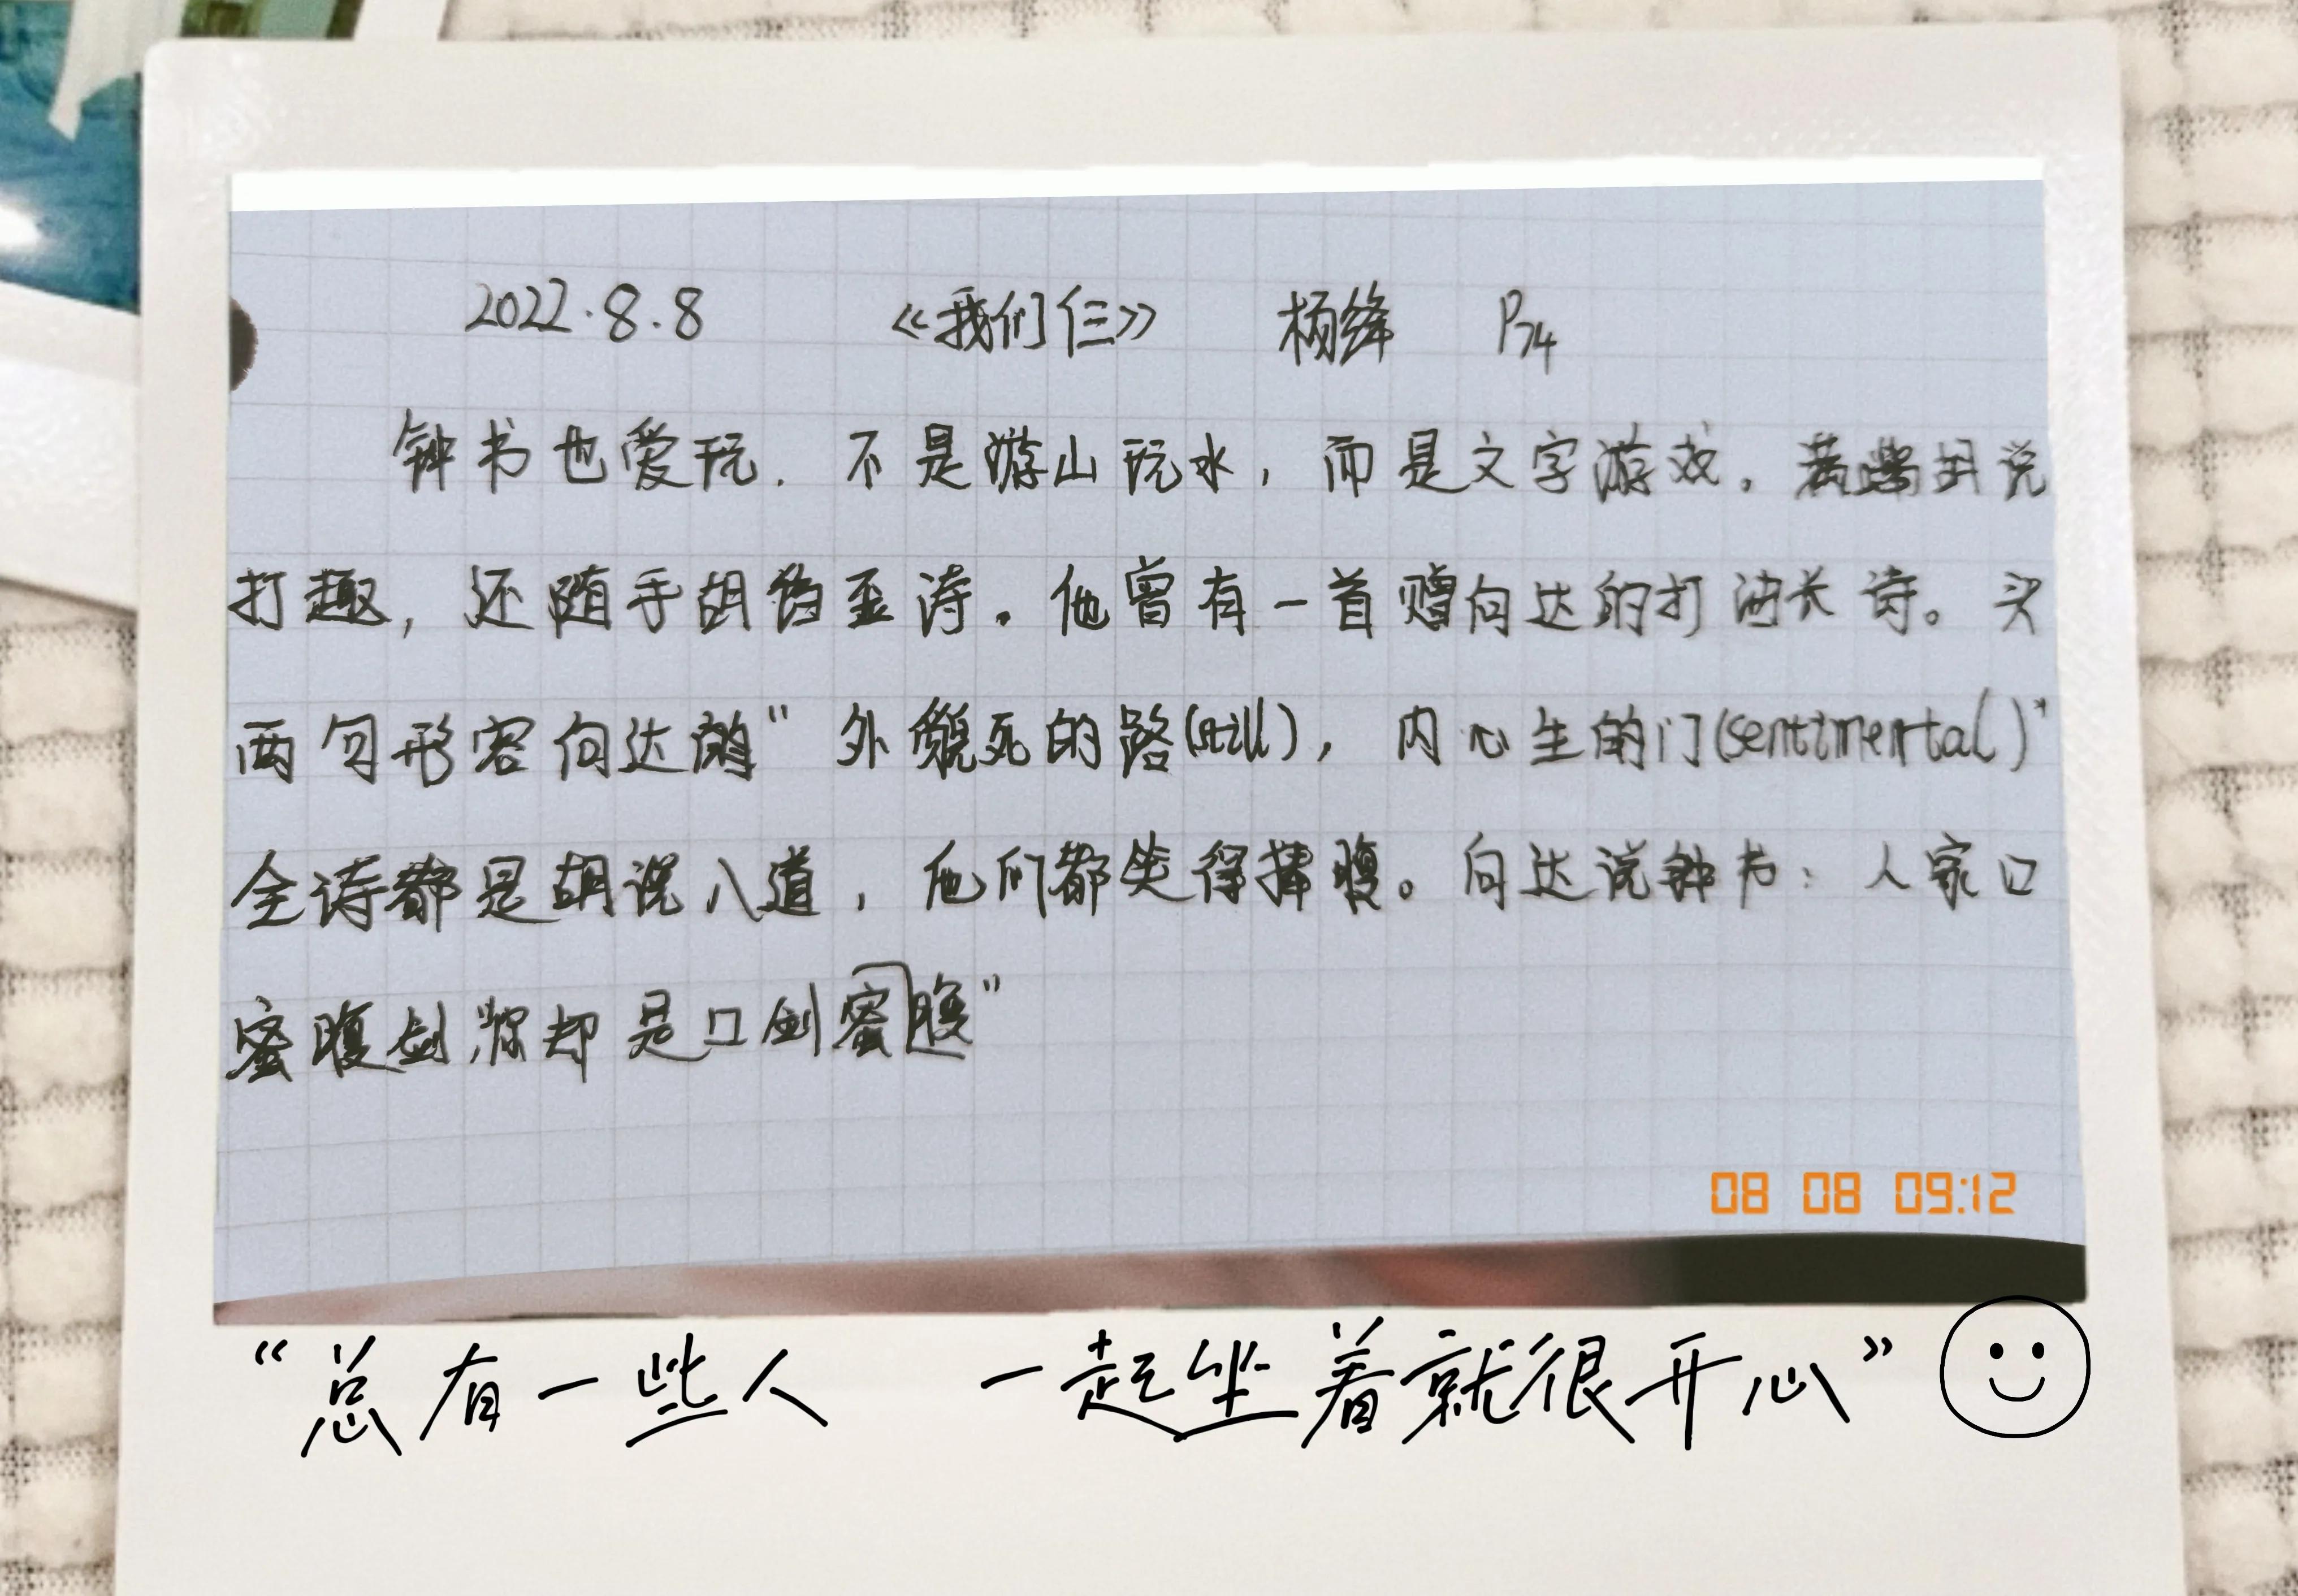 2022.8.8 《我们仨》 杨绛 P74
钟书也爱玩.不是游山玩水,而是文字游戏。满嘴胡说
打趣,还随手胡诌歪诗。他曾有一首赠向达的打油长诗。头
两句形容向达“外貌死的路(still),内心生的门(sentimental)”
全诗都是胡说八道,他们都笑得捧腹。向达说钟书:人家口
蜜腹剑,你却是口剑蜜腹”
08 08 09:12
“总有一些人 一起坐着就很开心”